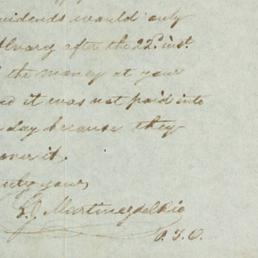 vidends would only
after the 22d inst.
the money at your
it was not paid into
day because they
over it.
truly yours,
Martinezdelrio
P. T. O.